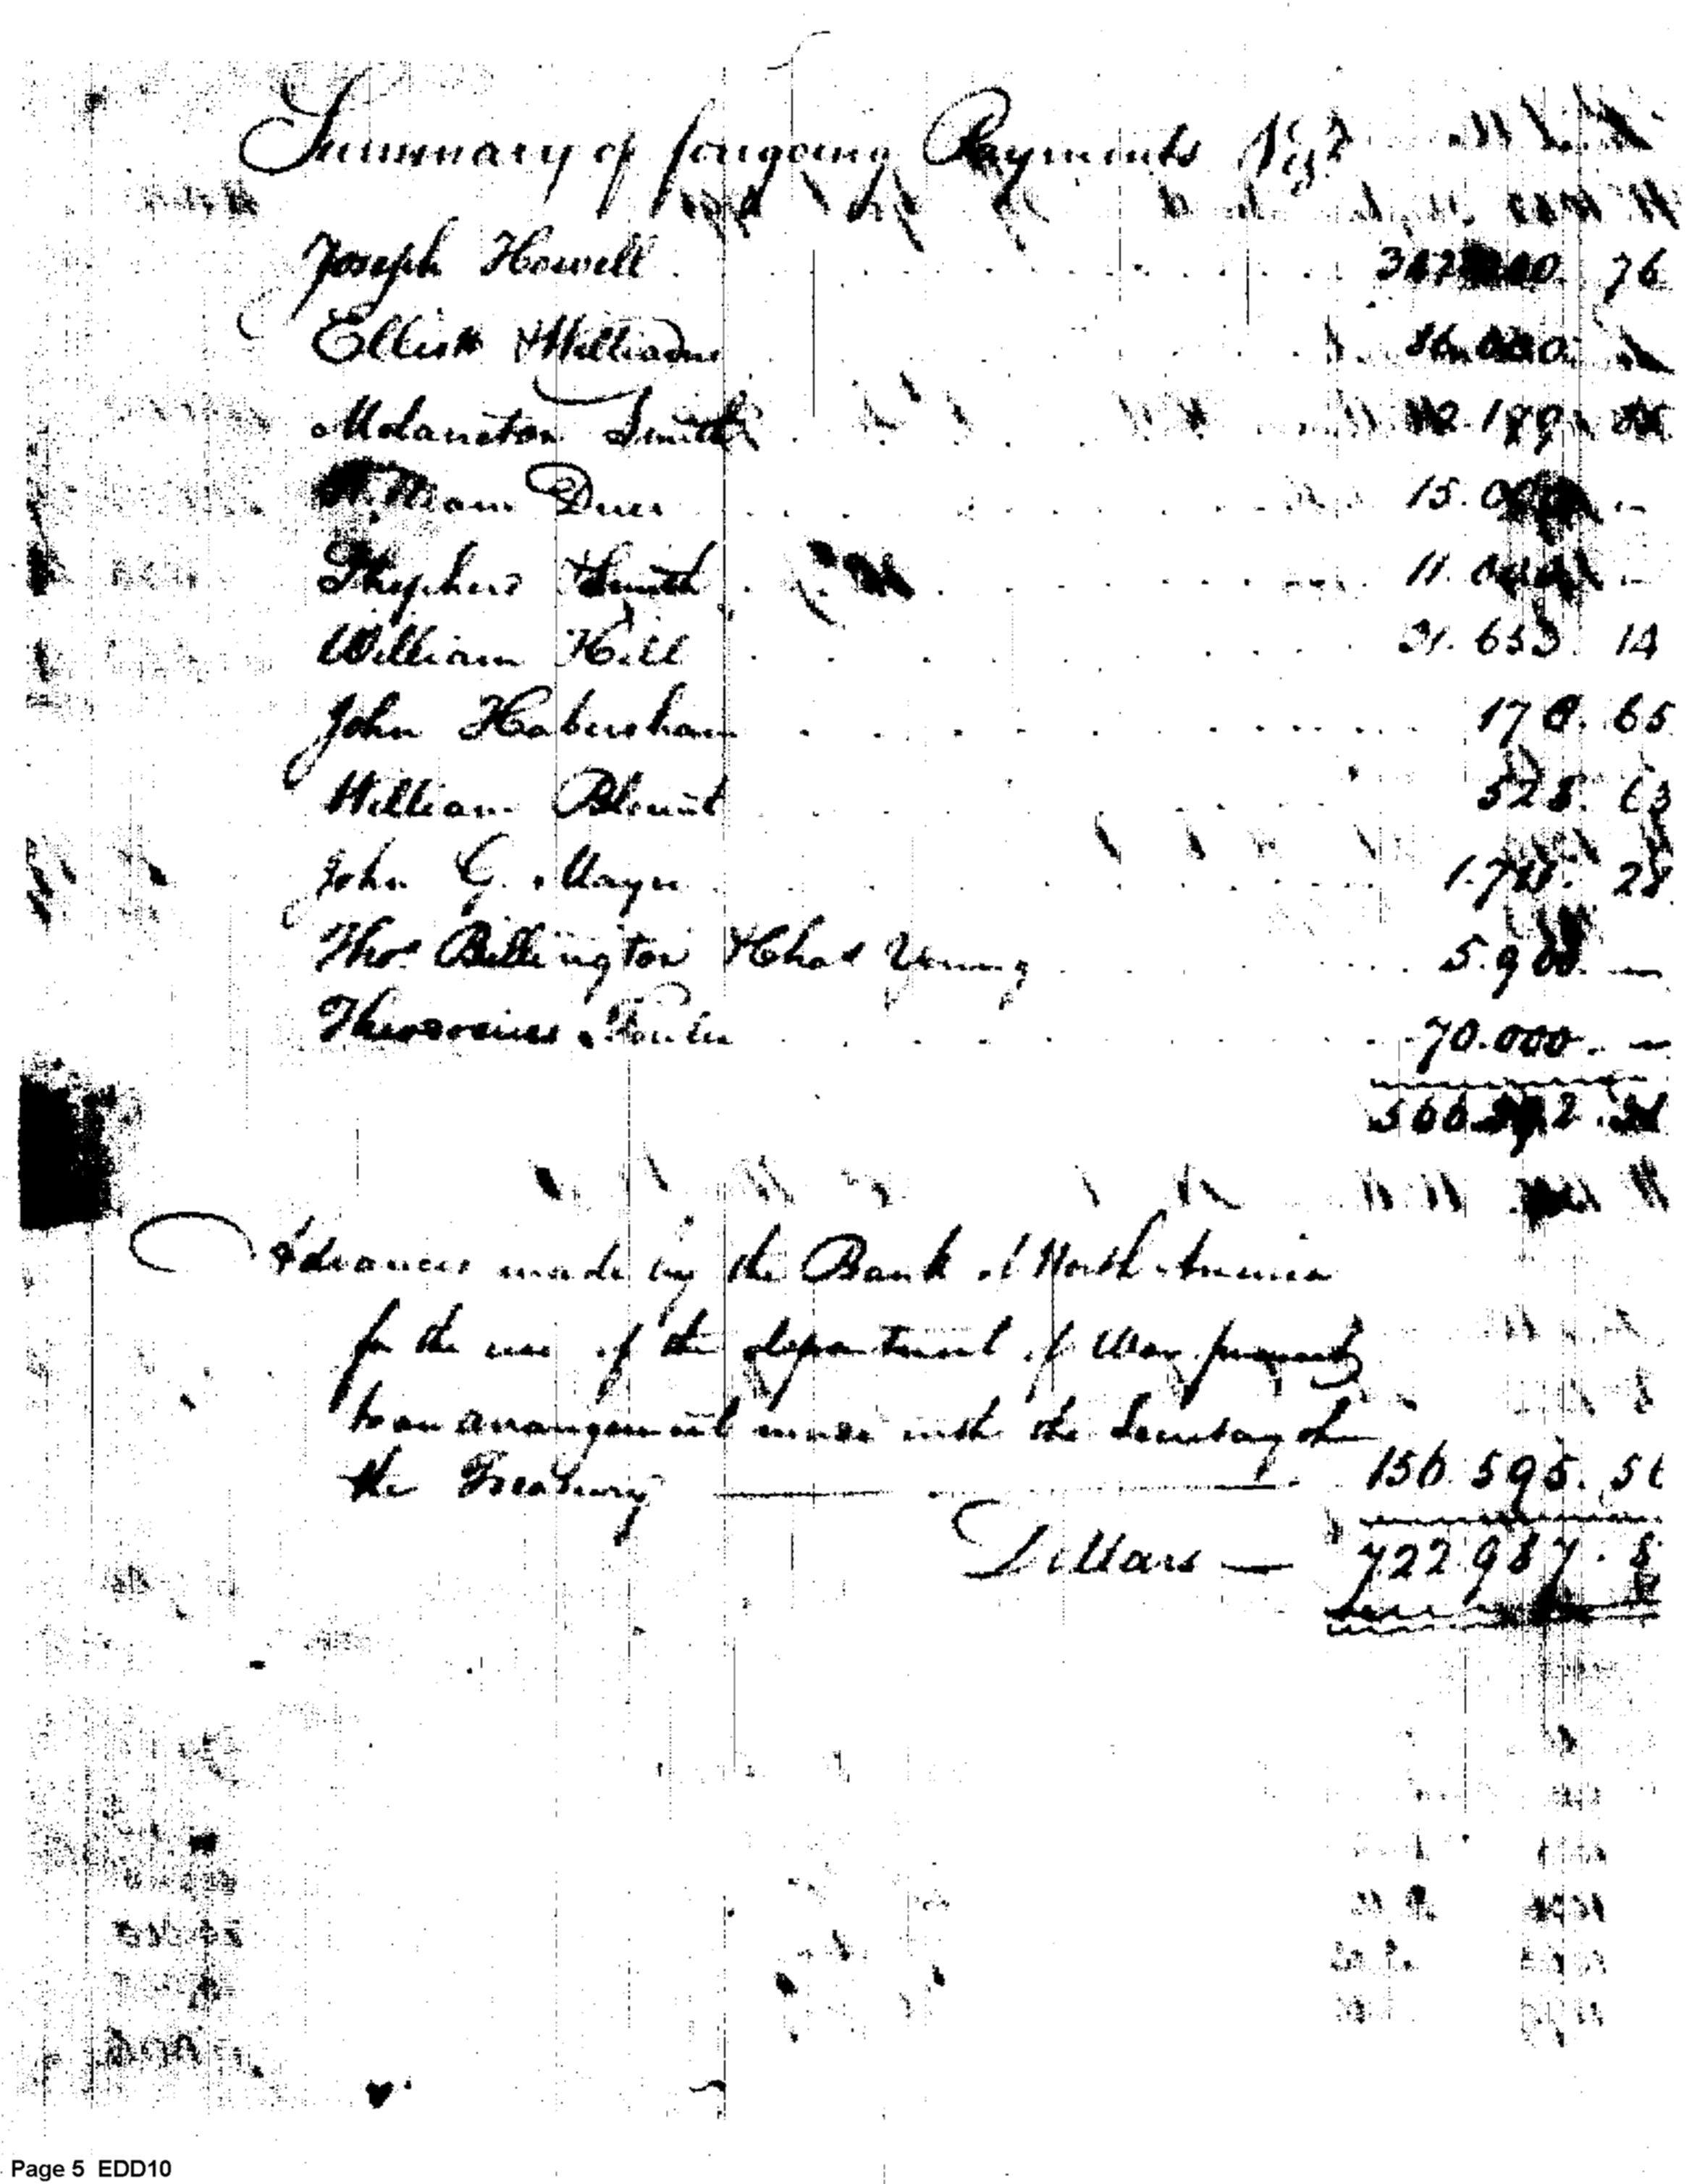 Summary of foregoing Payments Viz.t
Joseph Howell . . . . . . . . . . 76
Elliott & Williams . . . . . . . . 86.000.
Melancton Smith . . . . . . . . 189
William Duer . . . . . . . . 15.000 -
Shepherd Smith . . . . . . . . 11.000 -
William Hill . . . . . . . . 653. 14
John Habersham . . . . . . . . 178. 65
William Blount . . . . . . . . 528. 63
John G. Mayer . . . . . . . . 28
Thos. Billington & Chas Young . . . . . . 5.900. —
Theodosius Fowler . . . . . . . . 70.000. —
566
Advances made by the Bank of North America
for the use of the department of War pursuant
to an arrangement made with the Secretary of
the Treasury — 156.595. 56
Dollars — 722.987. 8
Page 5 EDD10